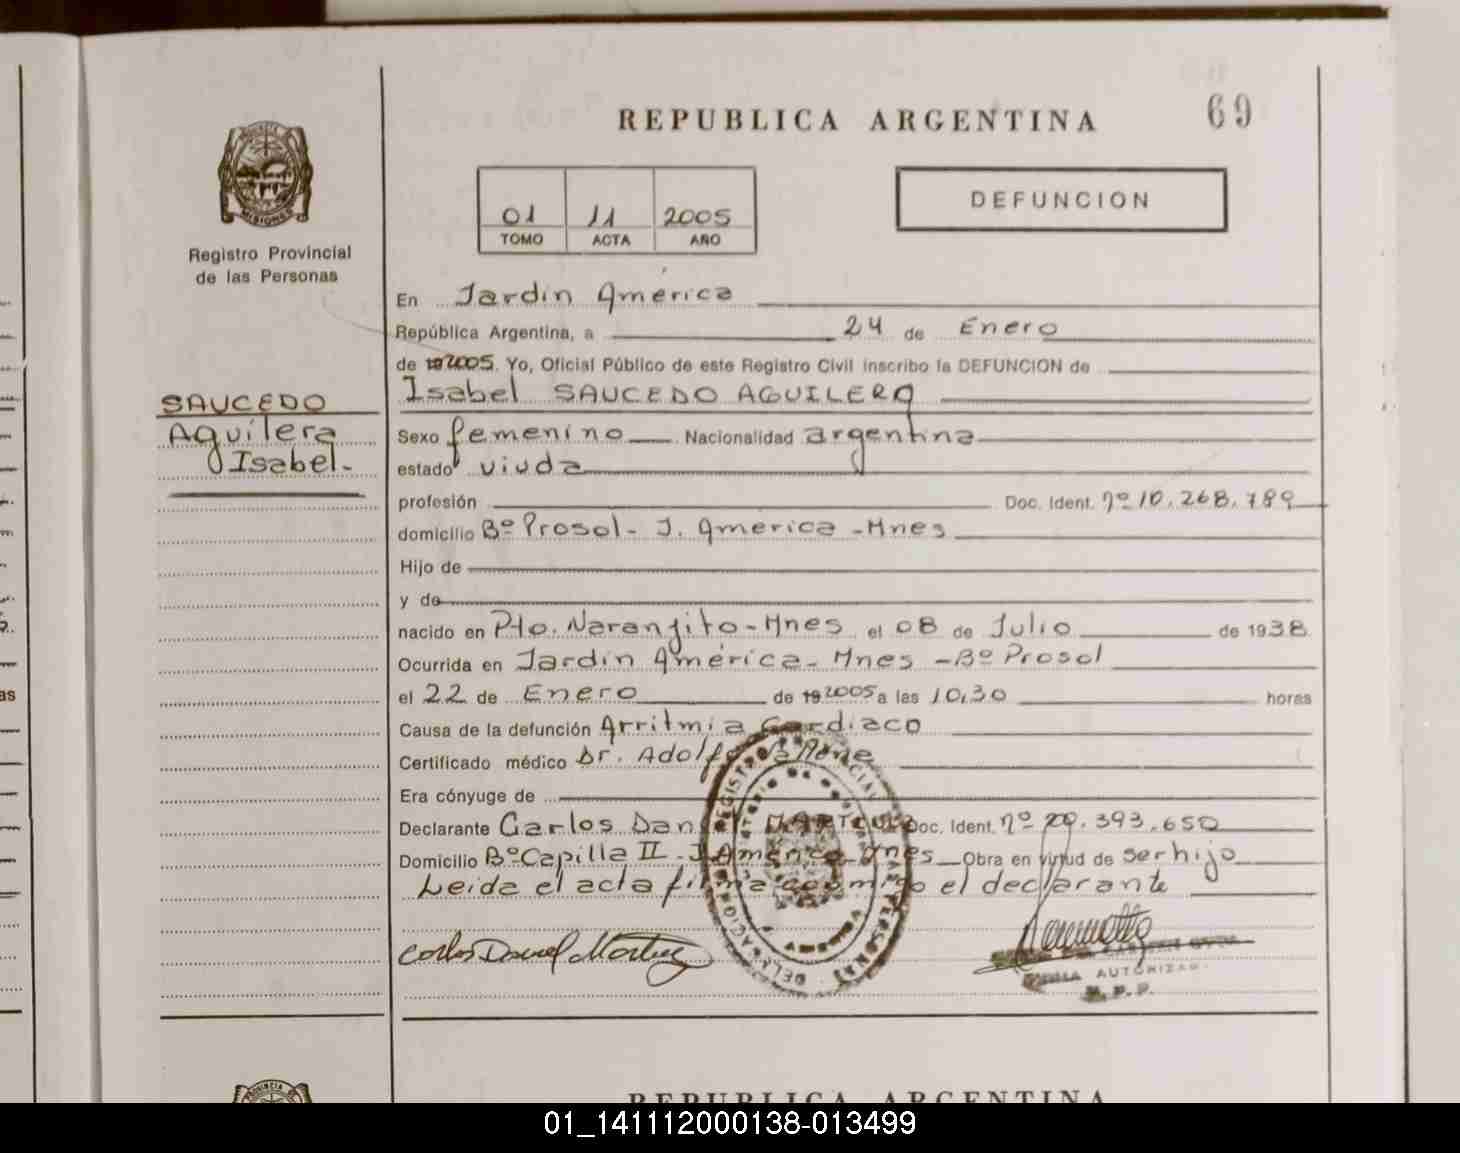 REPUBLICA ARGENTINA
69
DEFUNCION
01 11 2005
TOMO ACTA AÑO
PROVINCIA DE MISIONES
Registro Provincial
de las Personas
SAUCEDO
Aguilera
Isabel-
En Jardín América
República Argentina, a 24 de Enero
de 192005. Yo, Oficial Público de este Registro Civil inscribo la DEFUNCION de
Isabel SAUCEDO AGUILERA
Sexo femenino Nacionalidad argentina
estado viuda
profesión Doc. Ident. nº 10.268.789
domicilio Bº Prosol- J. America -Mnes
Hijo de
y de
nacido en Pto. Naranjito-Mnes el 08 de Julio de 1938
Ocurrida en Jardín América- Mnes -Bº Prosol
el 22 de Enero de 192005 a las 10,30 horas
Causa de la defunción Arritmia Cardiaco
Certificado médico Dr. Adolfo
Era cónyuge de
Declarante Carlos Daniel MARTINEZ Doc. Ident. nº 20.393.650
Domicilio Bº Capilla II - J. America- Mnes Obra en virtud de ser hijo
Leida el acta firma conmigo el declarante
Carlos Daniel Martinez
AUTORIZAD
REPUBLICA ARGENTINA
01_141112000138-013499